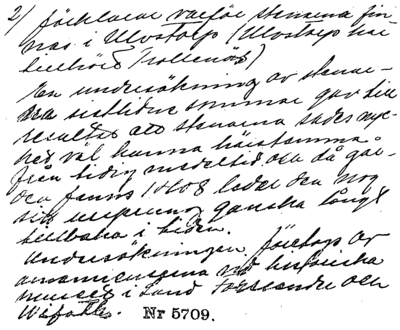 2) förklarar varför stenarna fin-
nas i Ulvstorp (Ulvstorp har
tillhört Trollenäs)
En undersökning av stenar-
na sistlidne sommar gav till
resultat att stenarna sades myc-
ket väl kunna härstamma
från tidig medeltid, och då går-
den fanns 1408 leder den nog
sitt ursprung ganska långt
tillbaka i tiden.
Undersökningen företogs av
amanuenserna vid historiska
museet i Lund Forssander och
Nr 5709.